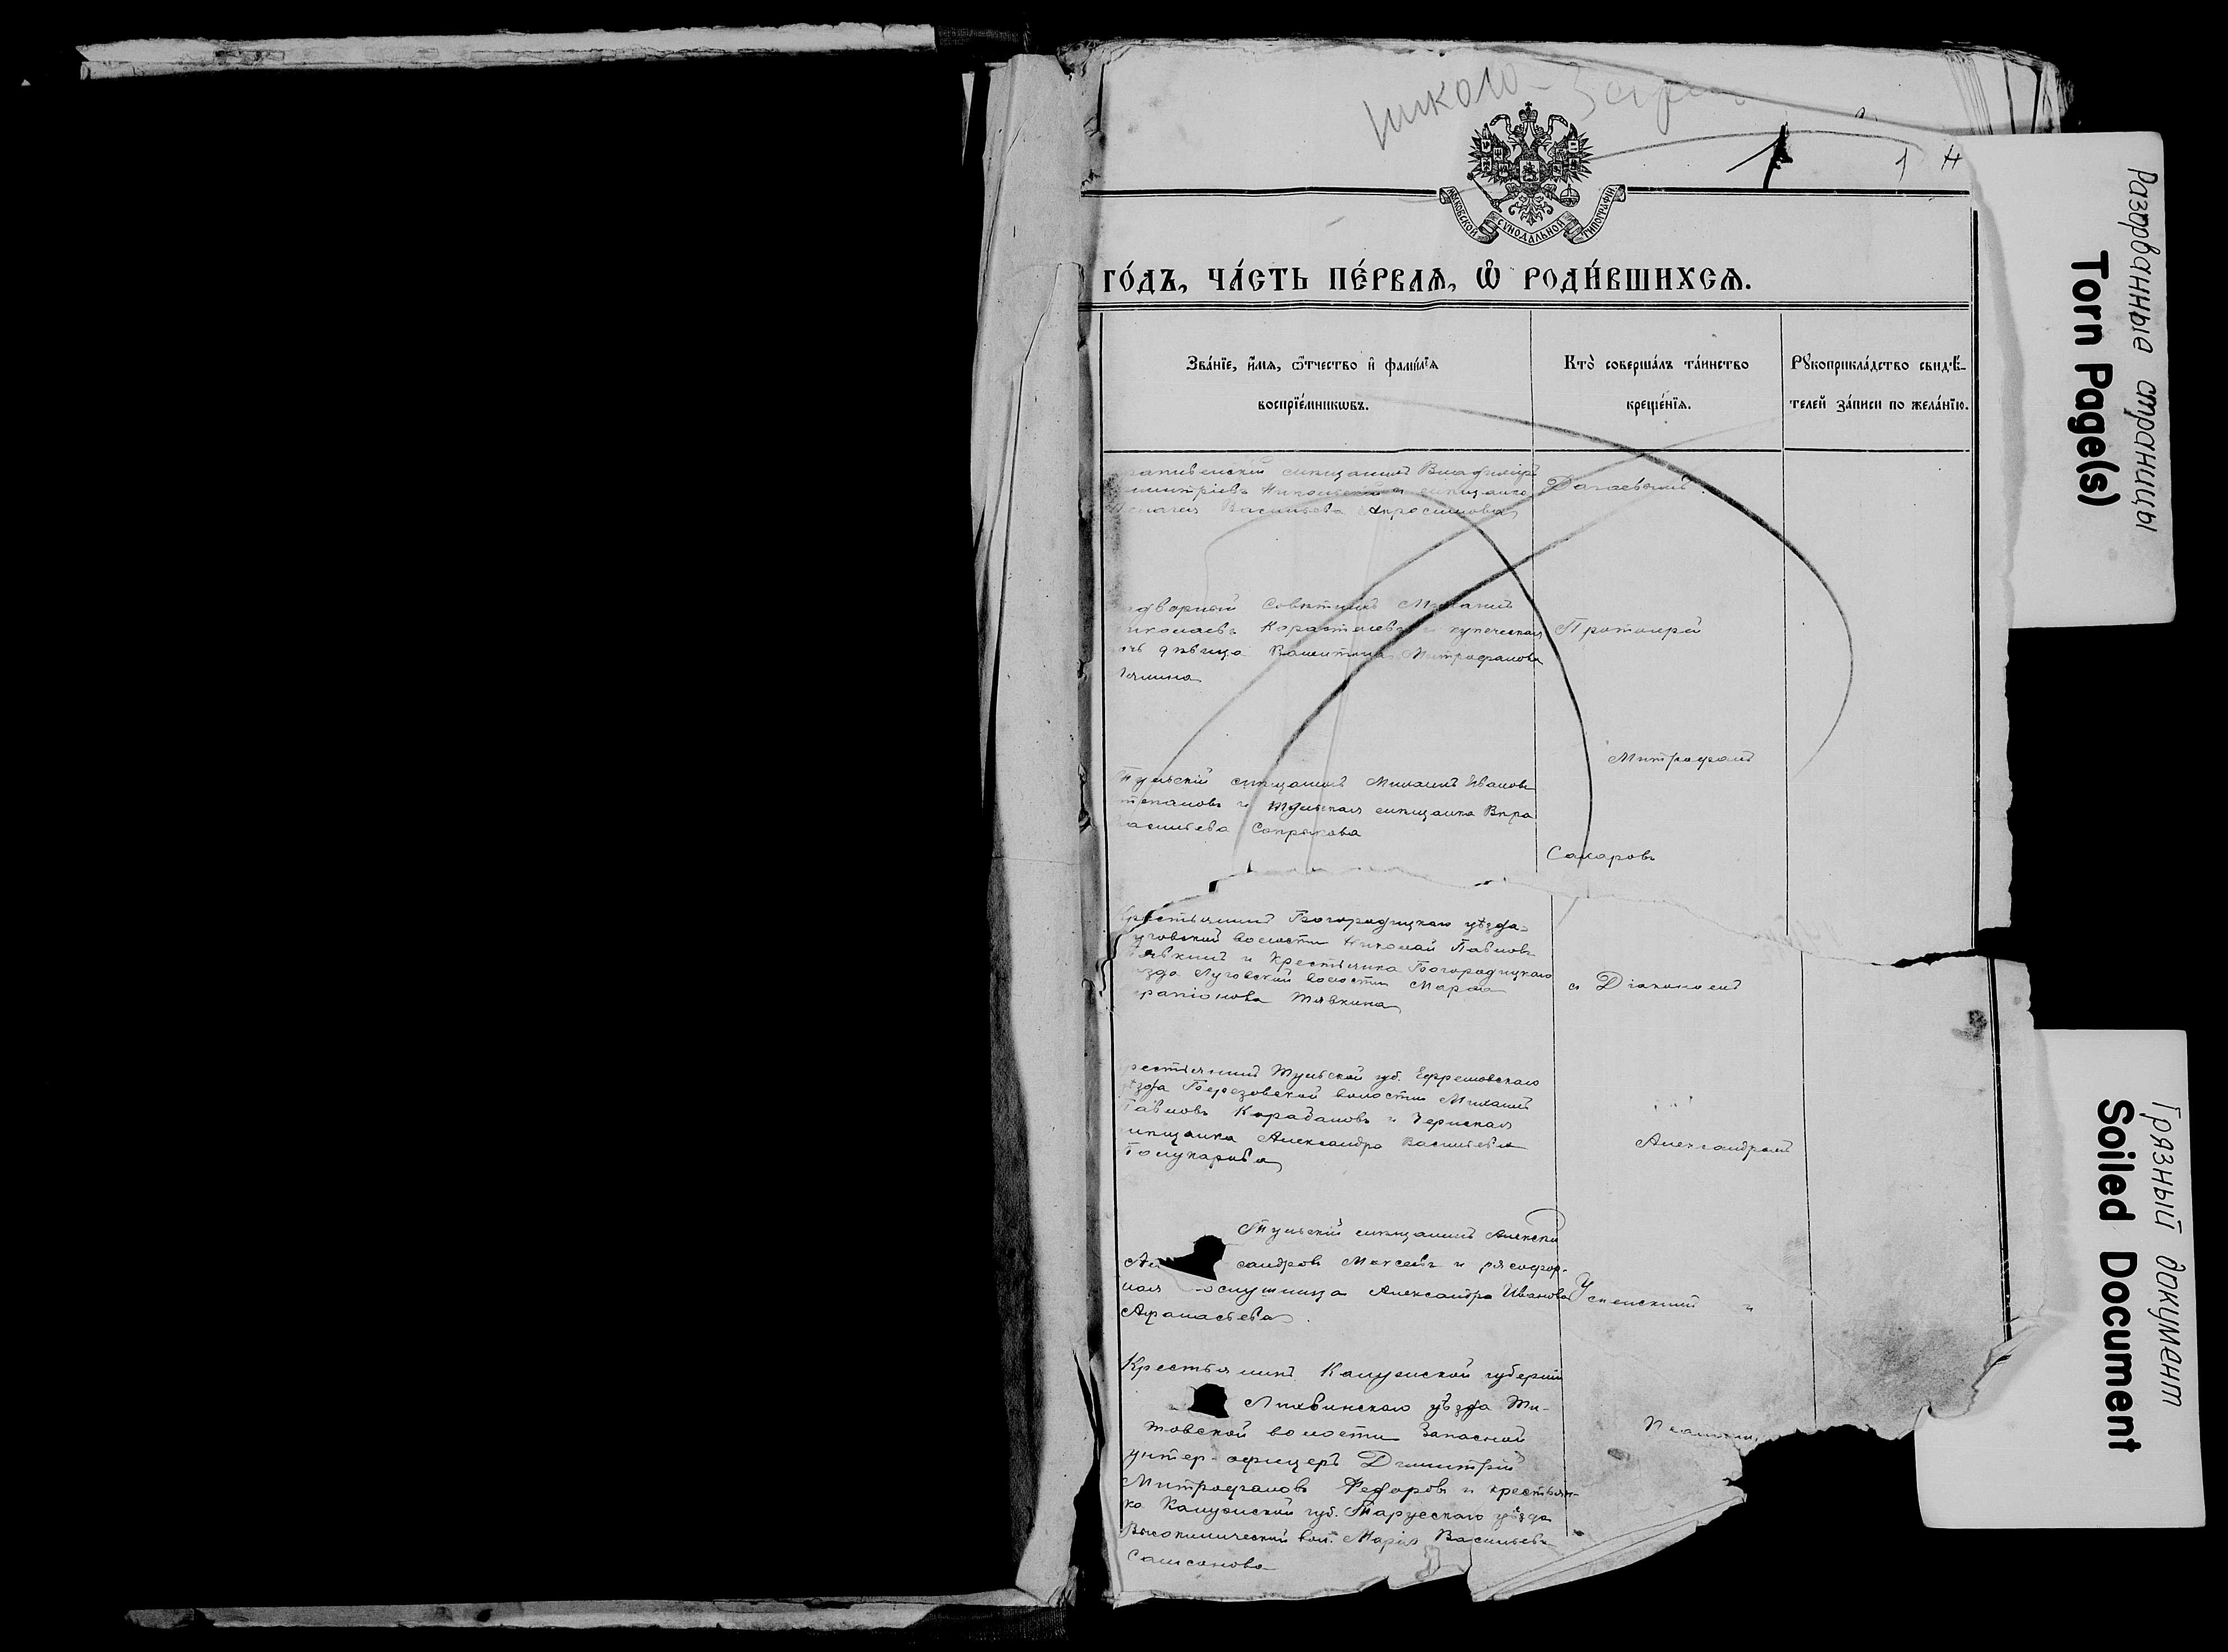 Николо-
1 Н
МОСКОВСКОЙ СѴНОДАЛЬНОЙ ТИПОГРАФІИ
ГО́ДЪ, ЧА́СТЬ ПЕ́РВАѦ, Ѽ РОДИ́ВШИХСѦ.
Зва́нїе, и҆́мѧ, ѻ҆́тчество и҆ фами́лїѧ
воспрїе́мникѡвъ.
Кто̀ соверша́лъ та́инство
креще́нїѧ.
Рꙋкоприкла́дство свидѣ́-
телей за́писи по жела́нїю.
мѣщанинъ Владиміръ
и мѣщанка
Васильева Апросимова
дворный Совѣтникъ Михаилъ
иколаевъ и купеческая
очь дѣвица Валентина Митрофанова
Протоиерей
Митрофанъ
Тульскій мѣщанинъ Михаилъ Ивановъ
тепановъ и тульская мѣщанка Вѣра
асильева Сопрыкова
Сахаровъ
Крестьянинъ Богородицкаго уѣзда
уговской волости Николай Павловъ
явкинъ и крестьянка Богородицкаго
ѣзда Луговской волости Марѳа
рапіонова Тявкина
съ Діакономъ
рестьянинъ Тульской губ. Ефремовскаго
ѣзда Березовской волости Михаилъ
Павловъ Карабановъ и Чернская
мѣщанка Александра Васильева
Полукарова
Александромъ
Тульскій мѣщанинъ Алексѣй
сандровъ Моксевъ и рясофор-
ная ослушница Александра Иванова
Афанасьева
Успенскимъ и
Крестьянинъ Калужской губерніи
Лихвинскаго уѣзда Ти-
товской волости Запасной
унтер-офицеръ Димитрій
Митрофановъ Федоровъ и крестьян-
ка Калужской губ. Тарусскаго уѣзда
Высокинической вол. Марія Васильева
Самсонова
Разорванные страницы
Torn Page(s)
Грязный документ
Soiled Document